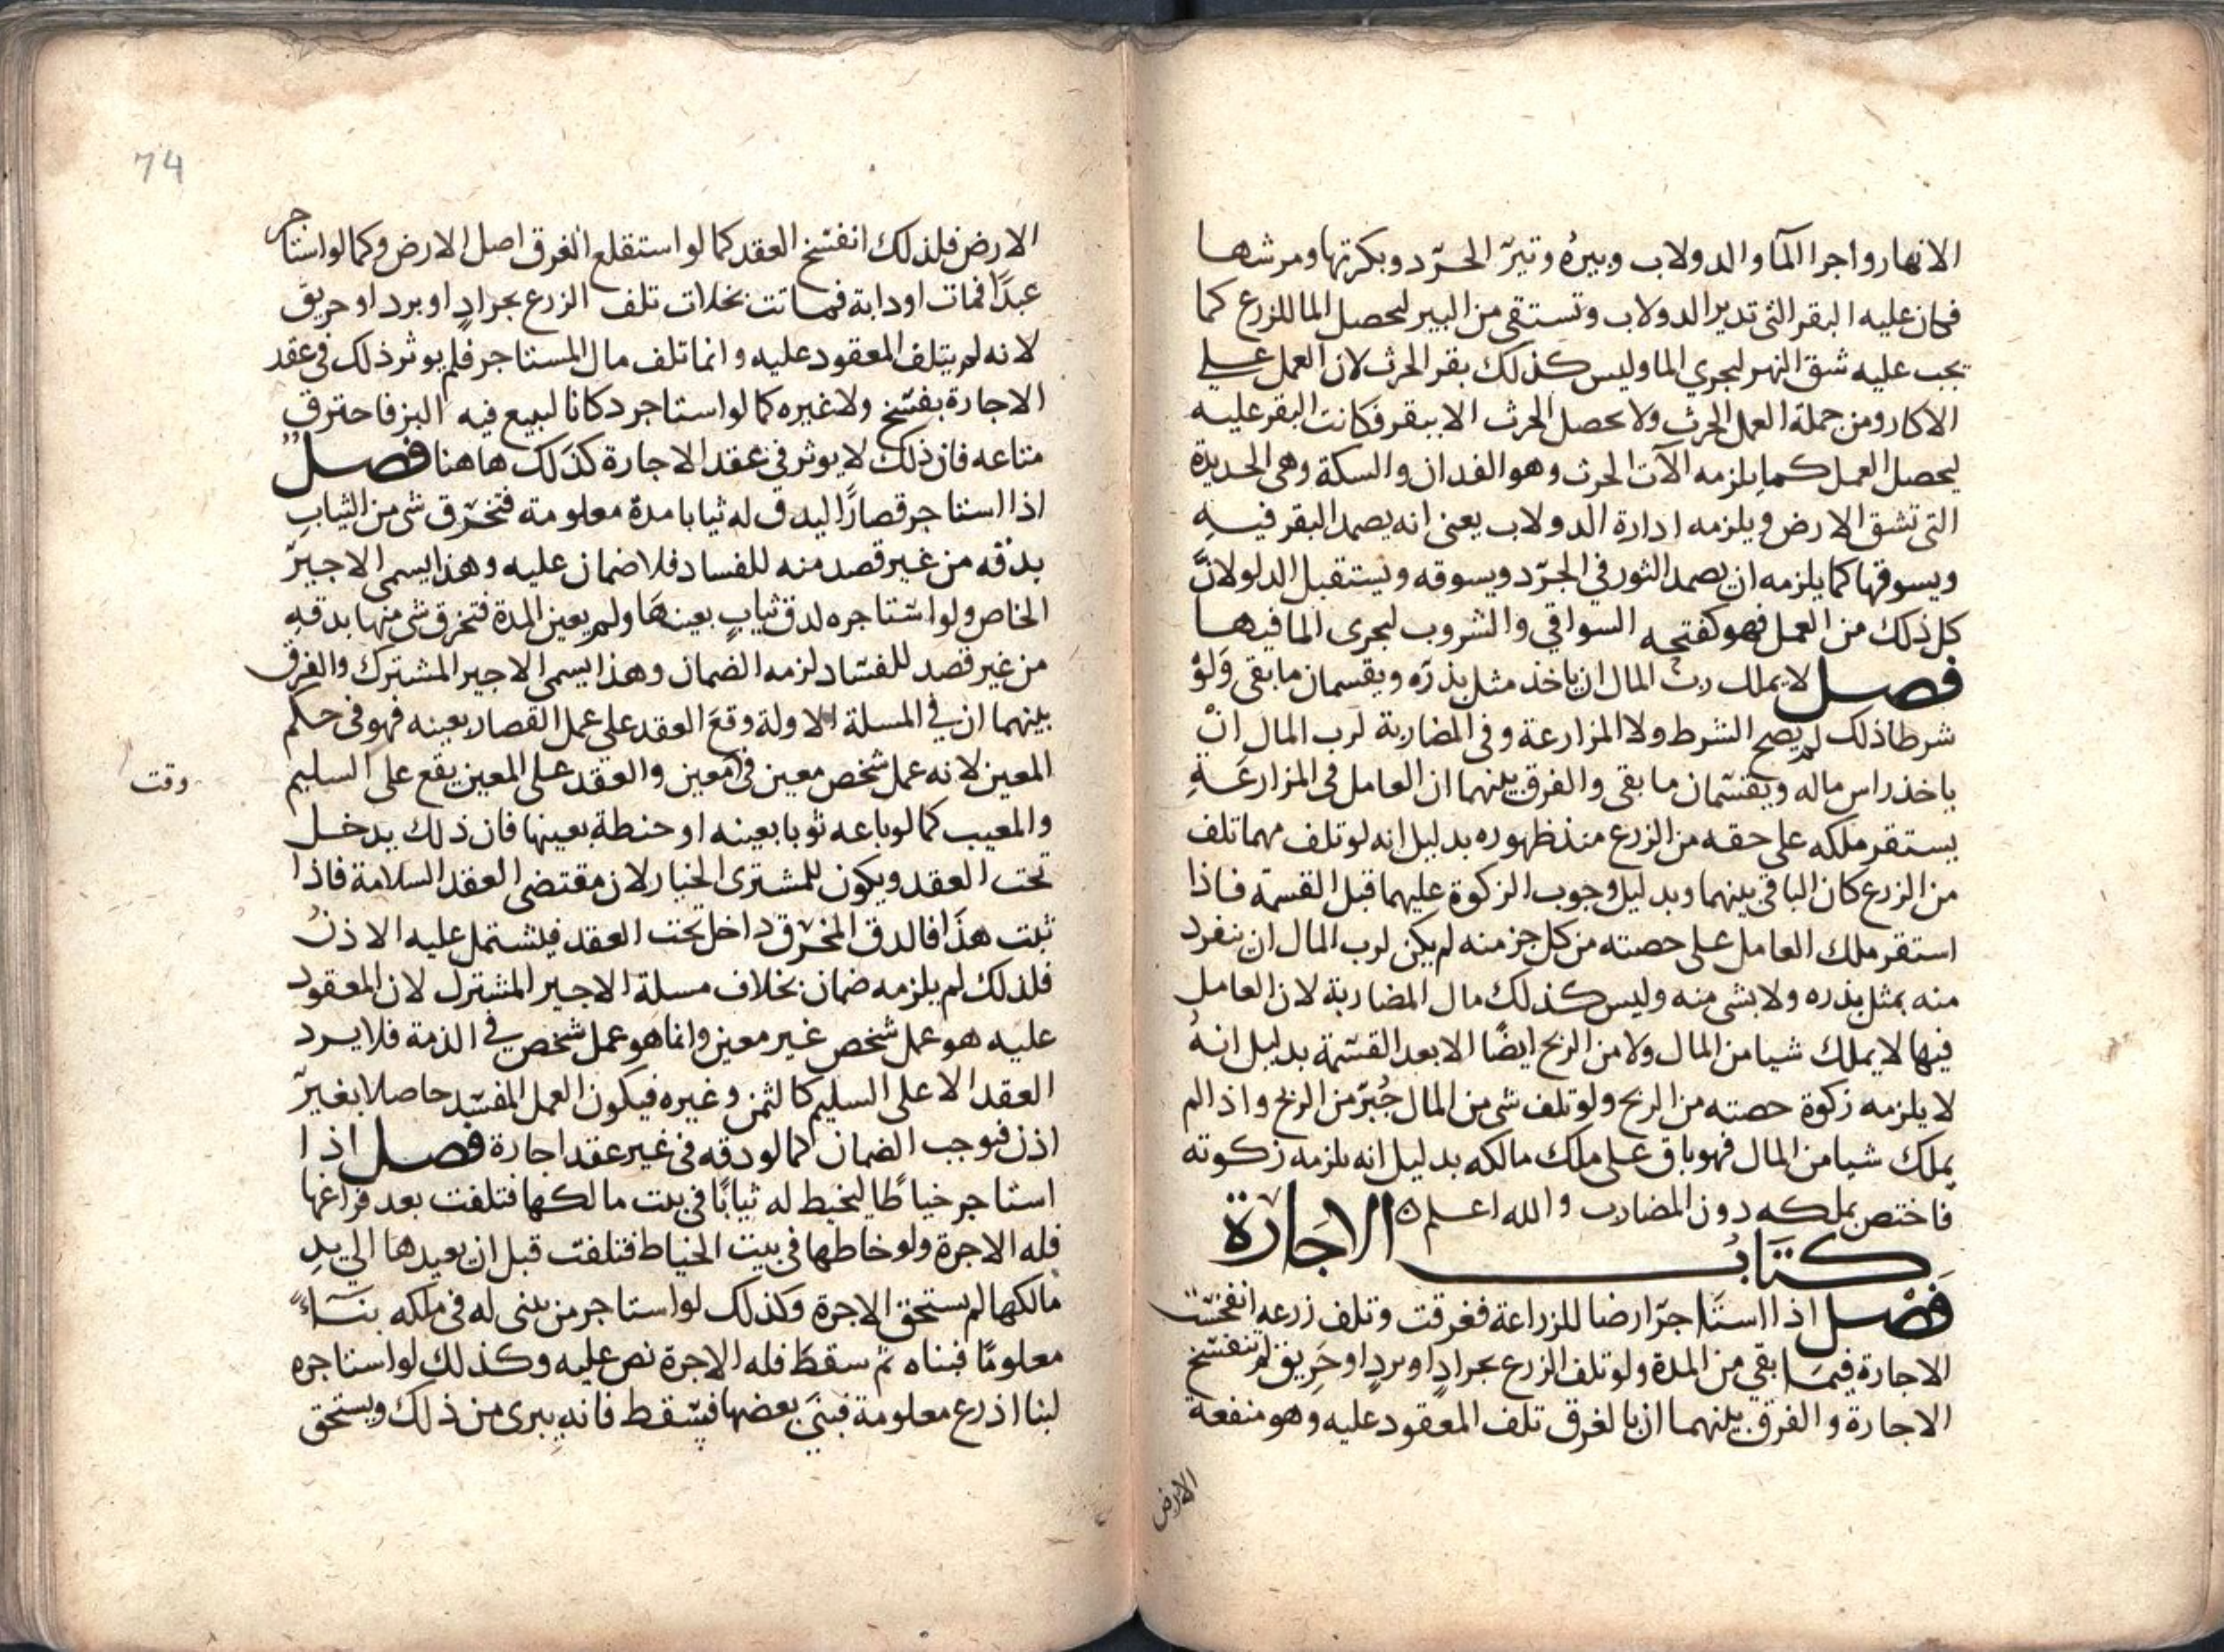 الانهار واجرا المآ والدولاب وبيره وتير الجرد وبكرتها ومرشها
فكان عليه البقر التي تدير الدولاب وتستقى من البير ليحصل الما للزرع كما
يجب عليه شق النهر ليجري الما وليس كذلك بقر الحرث لان العمل على
الاكار ومن جملة العمل الحرث ولا يحصل الحرث الا ببقر فكانت البقر عليه
ليحصل العمل كما يلزمه الآت الحرث وهو الفدان والسكة وهى الحديدة
التى تشق الارض ويلزمه ادارة الدولاب يعنى انه يصمد البقر فيه
ويسوقها كما يلزمه ان يصمد الثور في الجرد ويسوقه ويستقبل الدلو لانّ
كل ذلك من العمل فهو كفتحه السواقي والشروب ليجرى الما فيها
فصل لا يملك رب المال ان ياخذ مثل بذره ويقسمان ما بقى ولو
شرطا ذلك لم يصح الشرط ولا المزارعة وفى المضاربة لرب المال انْ
ياخذ راس ماله ويقتسمان ما بقى والفرق بينهما ان العامل فى المزارعَةِ
يستقر ملكه على حقه من الزرع منذ ظهوره بدليل انه لو تلف مهما تلف
من الزرع كان الباقي بينهما وبدليل وجوب الزكوة عليهما قبل القسمة فاذا
استقر ملك العامل على حصته من كل جز منه لم يكن لرب المال ان ينفرد
منه بمثل بذره ولا بشى منه وليس كذلك مال المضاربة لان العامل
فيها لا يملك شيا من المال ولا من الربح ايضًا الا بعد القسمة بدليل انهُ
لا يلزمه زكوة حصته من الربح ولو تلف شى من المال جُبر من الربح واذا لم
يملك شيا من المال فهو باق على ملك مالكه بدليل انه يلزمه زكوته
فاختص بملكه دون المضارب والله اعلم ه
كتاب الاجارة
فصل اذا استاجر ارضا للزراعة فغرقت وتلف زرعه انفسخت
الاجارة فيما بقي من المدة ولو تلف الزرع بجرادٍ او بردٍ او حَرِيق لم تنفسخ
الاجارة والفرق بينهما ان بالغرق تلف المعقود عليه وهو منفعة
الارض
74
الارض فلذلك انفسخ العقد كما لو استقلع الغرق اصل الارض وكما لو استاجر
عبدًا فمات او دابة فماتت بخلاف تلف الزرع بجرادٍ او برد او حريق
لانه لم يتلف المعقود عليه وانما تلف مال المستاجر فلم يوثر ذلك فى عقد
الاجارة بفسخ ولا غيره كما لو استاجر دكانا لبيع فيه البز فاحترق
متاعه فان ذلك لا يوثر فى عقد الاجارة كذلك هاهنا فصل
اذا استاجر قصارًا ليدق له ثيابا مدة معلومة فتخرق شى من الثيابِ
بدقه من غير قصد منه للفساد فلا ضمان عليه وهذا يسمى الاجير
الخاص ولو استاجره لدق ثيابٍ بعينهَا ولم يعين المدة فتخرق شى منها بدقهِ
من غير قصد للفساد لزمه الضمان وهذا يسمى الاجير المشترك والفرق
بينهما ان في المسلة الاولة وقعَ العقد على عمل القصار بعينه فهو فى حكم
المعين لانه عمل شخص معين فى معين والعقد على المعين يقع على السليم
وقت
والمعيب كما لو باعه ثوبا بعينه او حنطة بعينها فان ذلك يدخل
تحت العقد ويكون للمشترى الخيار لان مقتضى العقد السلامة فاذا
ثبت هذا فالدق المخرق داخل تحت العقد فيشتمل عليه الاذنُ
فلذلك لم يلزمه ضمان بخلاف مسلة الاجير المشترك لان المعقود
عليه هو عمل شخص غير معين وانما هو عمل شخص في الذمة فلا يرد
العقد الا على السليم كالثمن وغيره فيكون العمل المفسد حاصلا بغير
اذن فوجب الضمان كما لو دقه فى غير عقد اجارة فصل اذا
استاجر خياطًا ليخيط له ثيابًا فى بيت مالكها فتلفت بعد فراغها
فله الاجرة ولو خاطها فى بيت الخياط فتلفت قبل ان يعيدها الي يدِ
مالكها لم يستحق الاجرة وكذلك لو استاجر من يبنى له فى ملكه بنآءً
معلومًا فبناه ثم سقط فله الاجرة نص عليه وكذلك لو استاجره
لبنا اذرع معلومة فبنى بعضها فسقط فانه يبرى من ذلك ويستحق